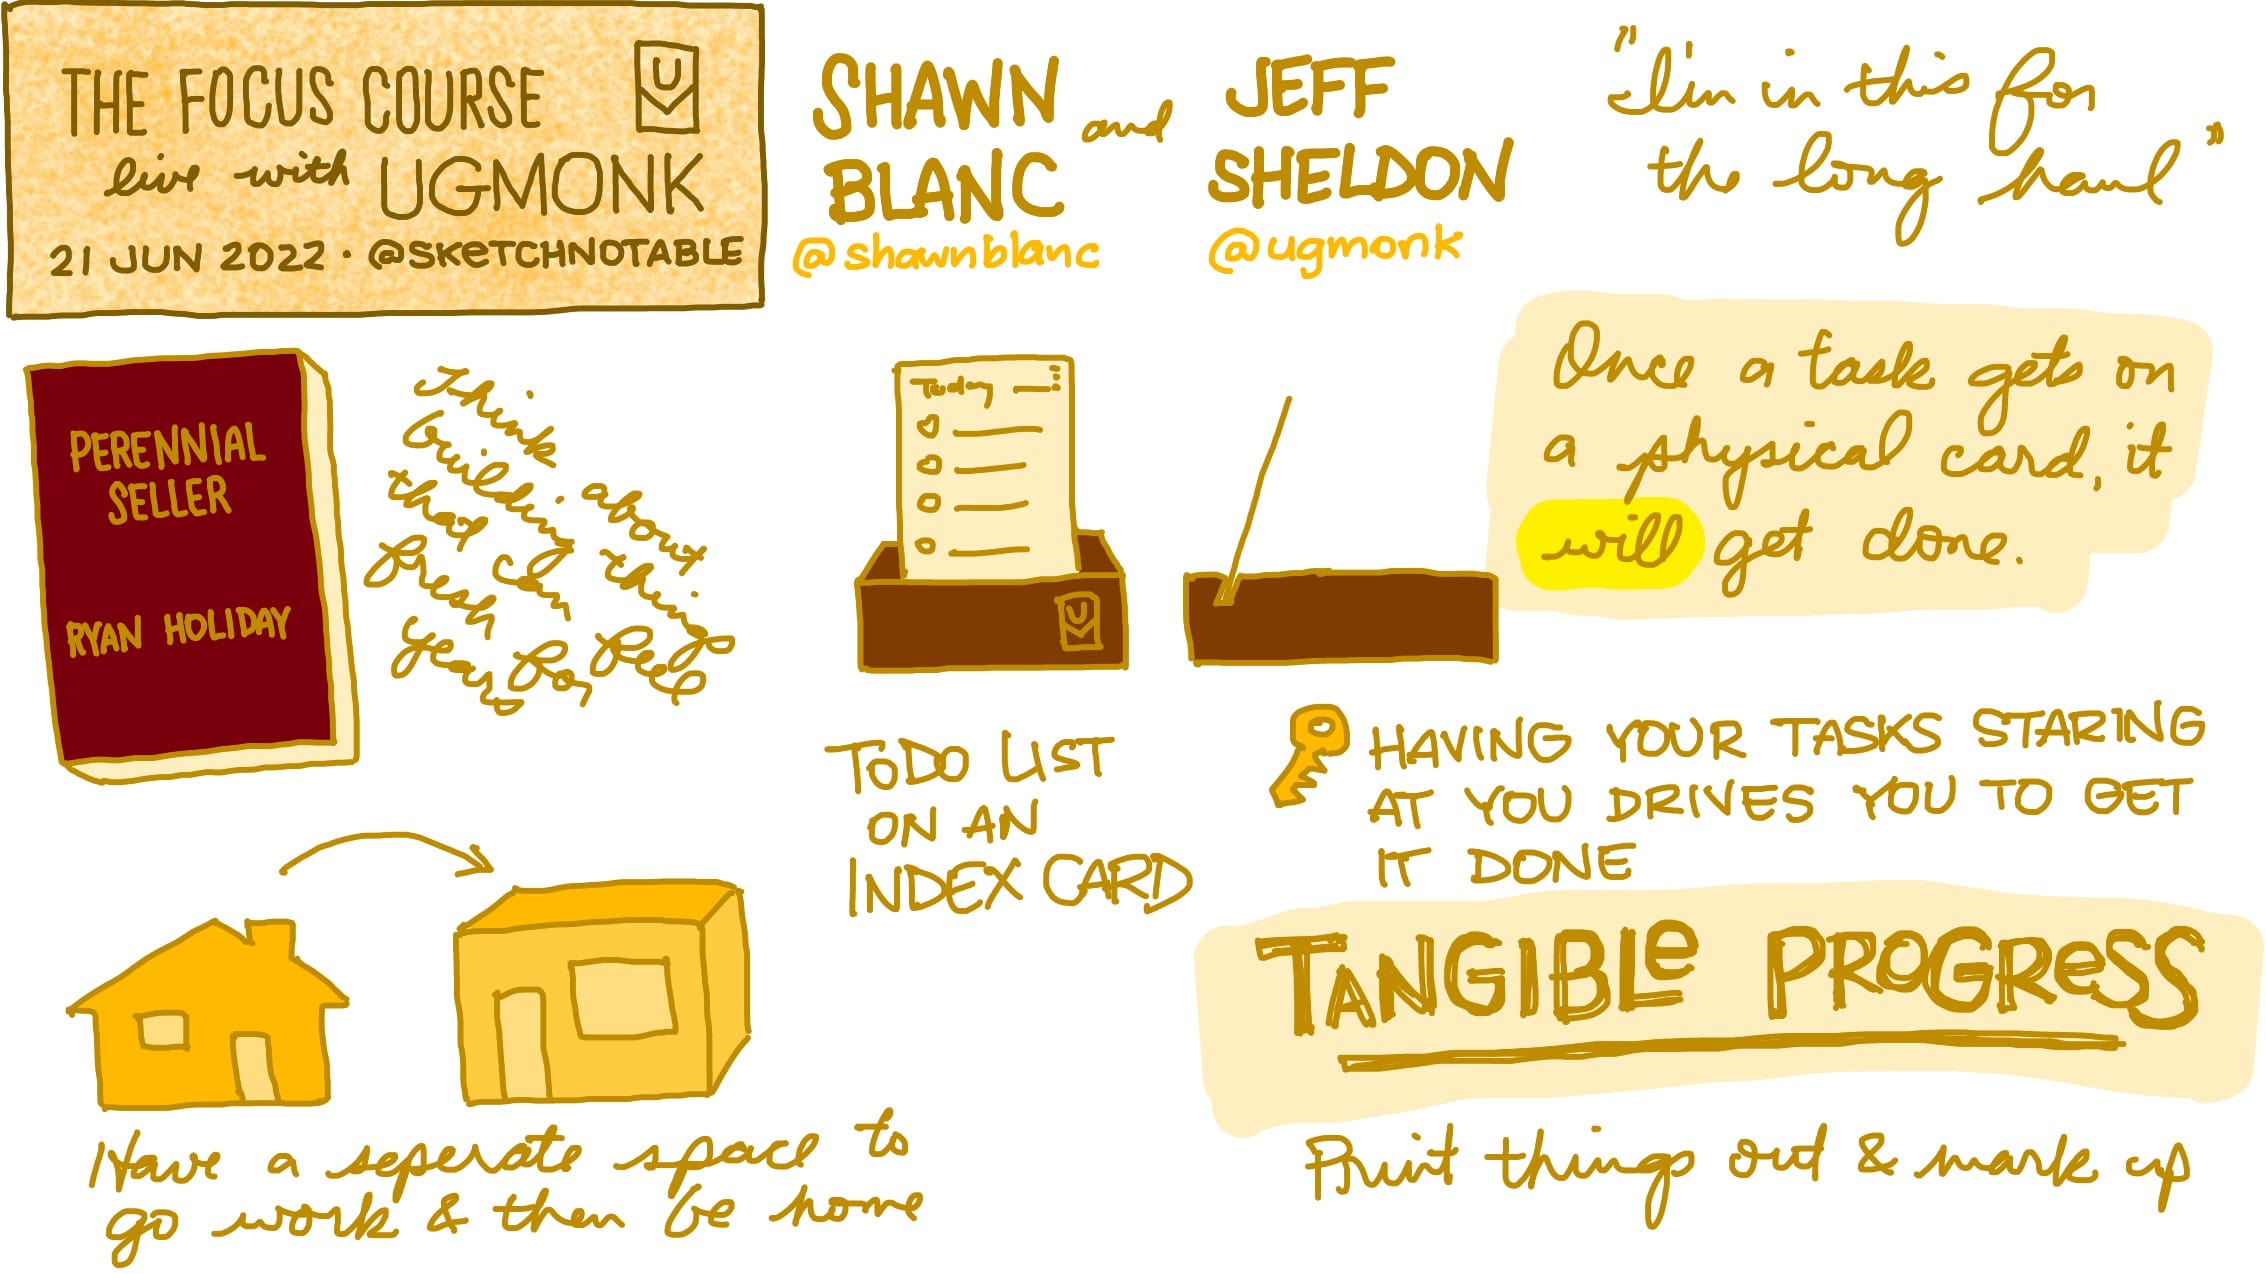 THE FOCUS COURSE
live with UGMONK
21 JUN 2022 · @SKETCHNOTABLE
U
SHAWN
BLANC
and
JEFF
SHELDON
@shawnblanc
@ugmonk
"I'm in this for
the long haul"
PERENNIAL
SELLER
RYAN HOLIDAY
Think about
building things
that can feel
fresh for
years
Today
U
Once a task gets on
a physical card, it
will get done.
TODO LIST
ON AN
INDEX CARD
HAVING YOUR TASKS STARING
AT YOU DRIVES YOU TO GET
IT DONE
TANGIBLE PROGRESS
Print things out & mark up
Have a seperate space to
go work & then be home